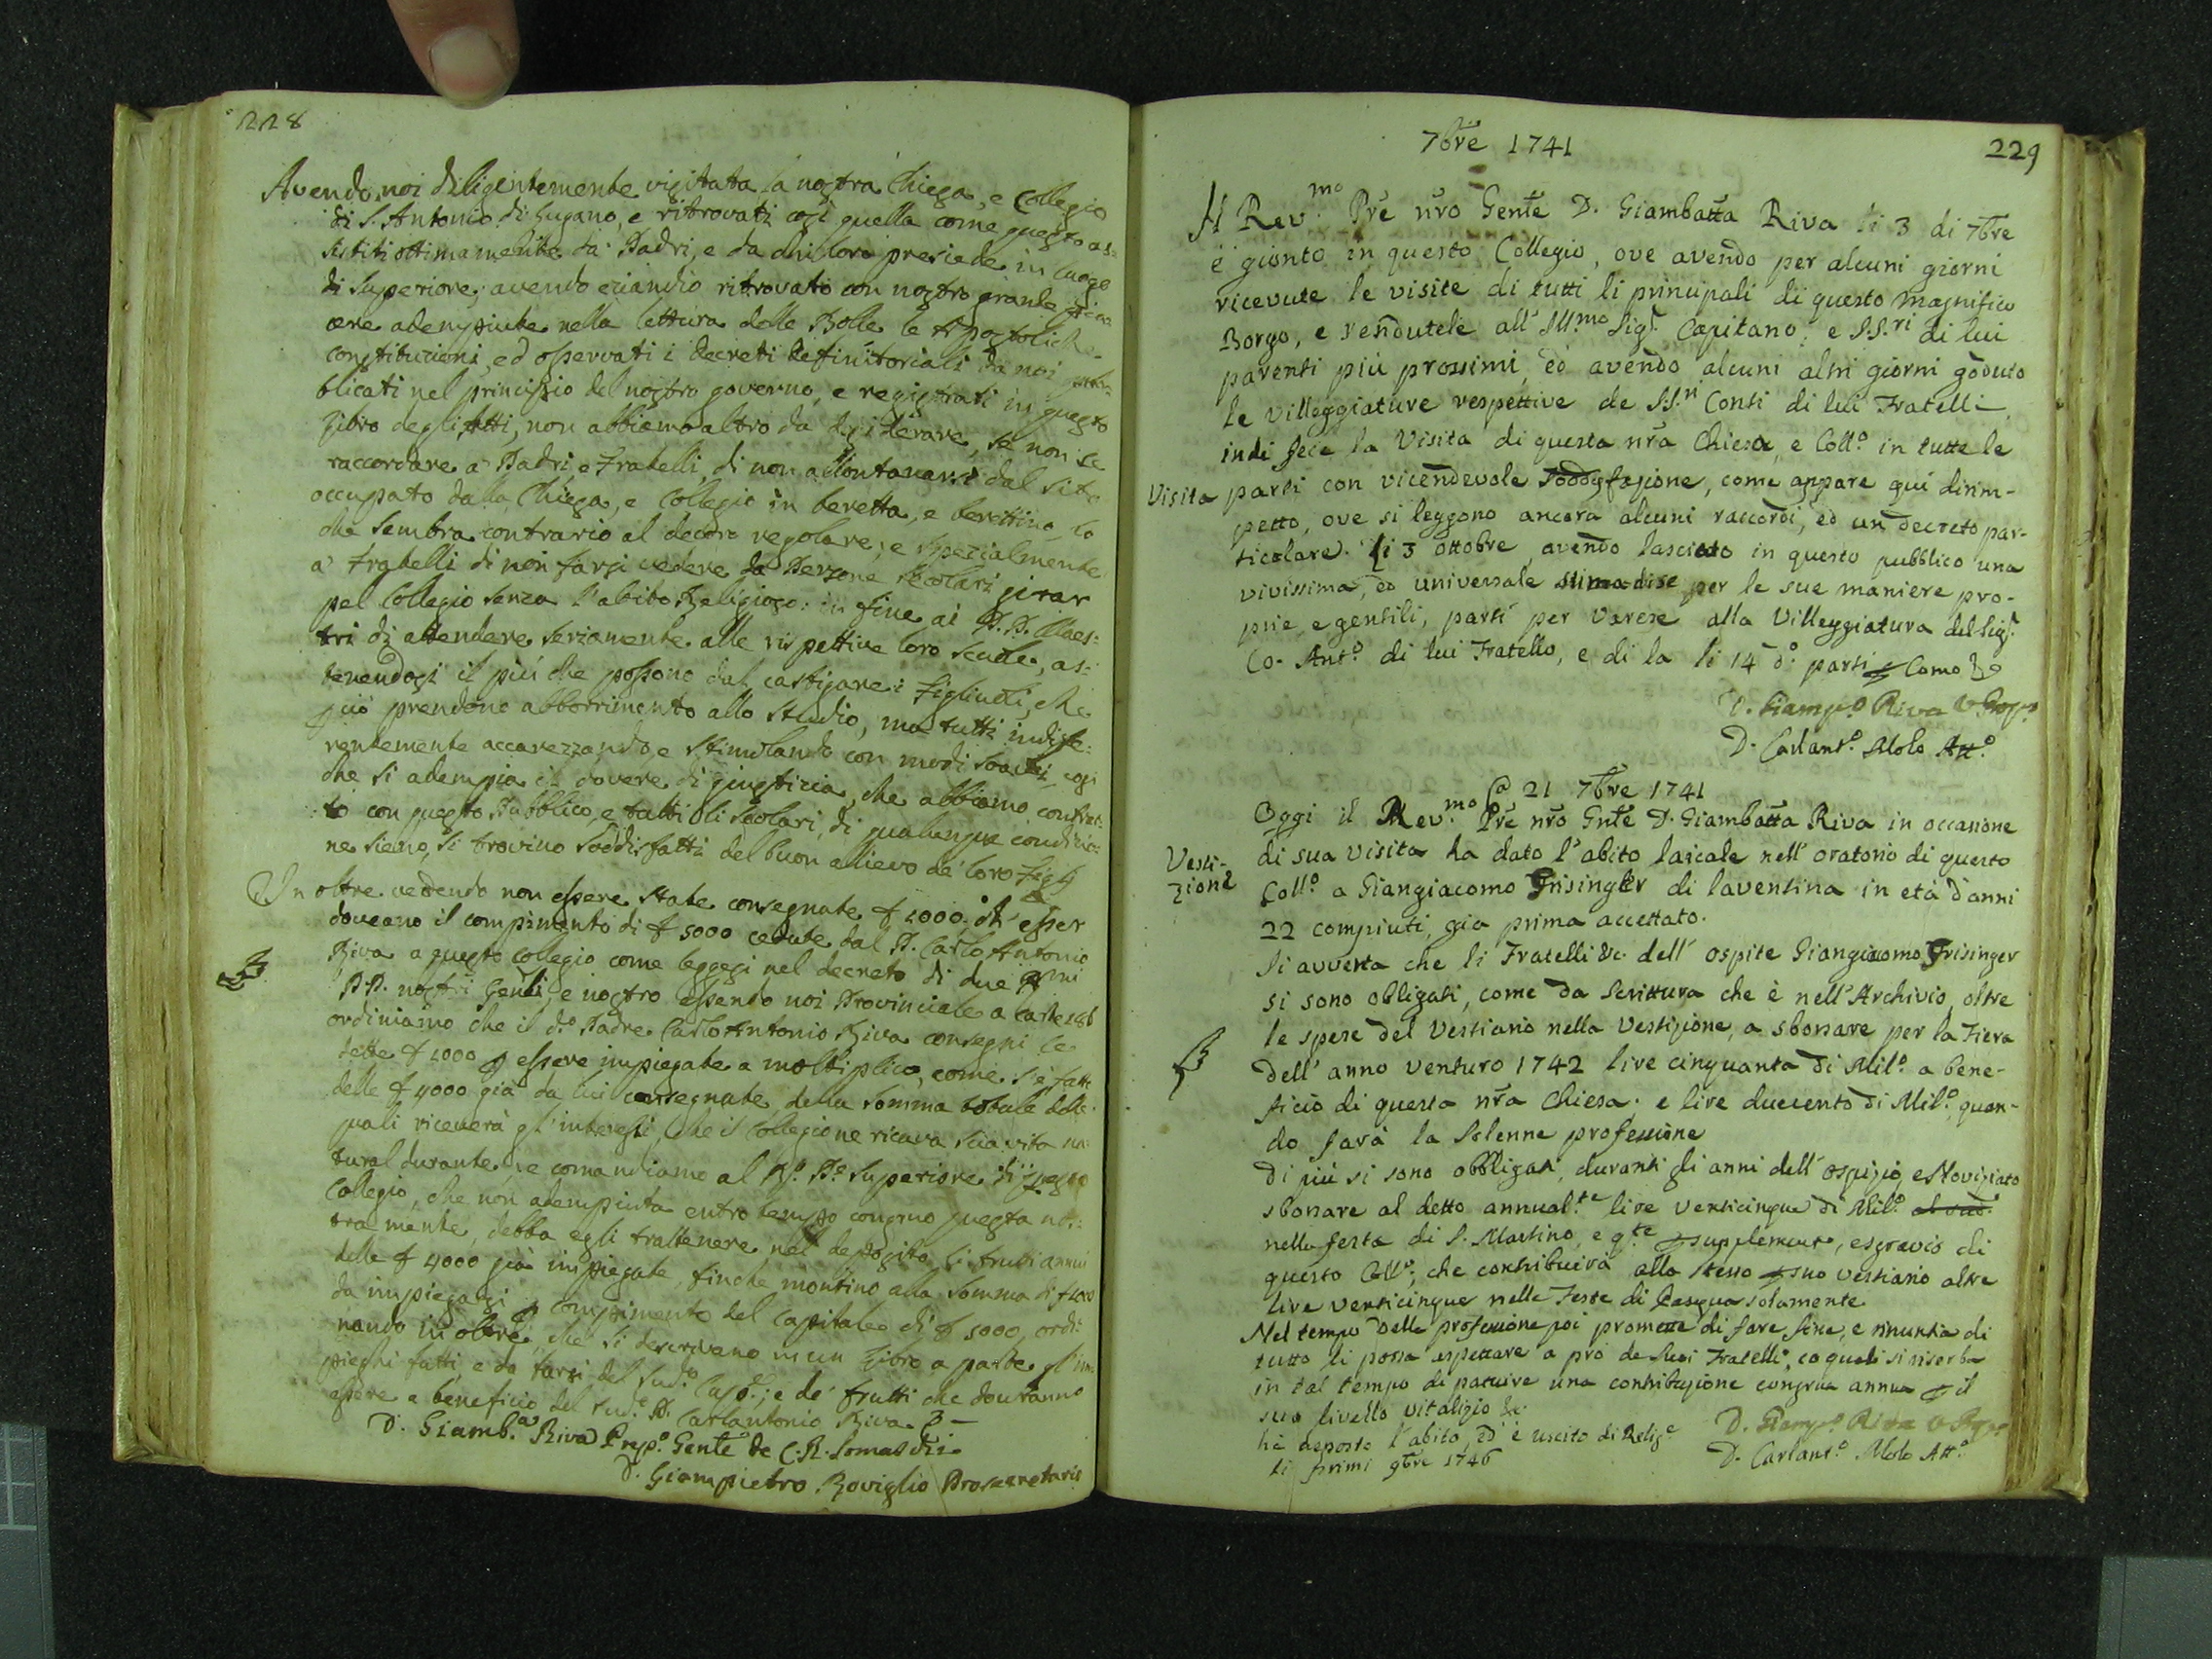 228
Avendo noi diligentemente visitata la nostra Chiesa, e Collegio
di S. Antonio di Lugano, e ritrovati così quella come questo as-
sistiti ottimamente da' Padri, e da chi loro presiede in luogo
di Superiore; avendo eziandio ritrovato con nostro grande
ere adempiute nella lettura delle Bolle le Apostoliche
constitucioni, ed osservati i decreti definitoriali da noi pub-
blicati nel principio del nostro governo, e registrati in questo
Libro degli Atti, non abbiamo altro da desiderare, se non se
raccordare a' Padri, e Fratelli, di non allontanarsi dal sito
occupato dalla Chiesa, e Collegio in beretta, e berettino, lo
che sembra contrario al decoro regolare; e spezialmente
a' Fratelli di non farsi vedere da Persone secolari girar
pel Collegio senza l'abito Religioso: in fine ai P.P. Maes:
tri di attendere seriamente alle rispettive loro scuole, as:
tenendosi il più che possono dal castigare i Figliuoli, che
più prendono abborrimento allo studio, ma tutti indife:
rentemente accarezzando, e stimolando con modi soavi, cosi
che si adempia il dovere di giustizia, che abbiamo contrat:
to con questo Pubblico, e tutti li scolari, di qualunque condizio:
ne sieno, si trovino soddisfatti del buon allievo de' loro Figlj
In oltre vedendo non essere state consegnate £ 1000. ch' esser
doveano il compimento di £ 5000 cedute dal P. Carlo Antonio
Riva a questo Collegio come leggesi nel decreto di due Rmi
P.P. nostri Genli, e nostro essendo noi Provinciale a carte 186
ordiniamo che il do Padre Carlo Antonio Riva consegni le
dette £ 1000 p essere impiegate a moltiplico, come s'è fatt
delle £ 4000 già da lui consegnate, della somma totale delle
quali riceverà gl'interessi, che il Collegio ne ricava sua vita na:
tural durante: e comandiamo al Rdo Pe Superiore di questo
Collegio, che non adempiuta entro tempo congruo questa nos:
tra mente, debba egli trattenere nel deposito li frutti annui
delle £ 4000 già impiegate, finche montino alla somma di £ 1000
da impiegarsi p compimento del Capitale di £ 5000, ordi:
nando in oltre, che si descrivano in un Libro a parte gl'im:
pieghi fatti, e da farsi del sudo Caple; e de' frutti che dovranno
essere a beneficio del sude P. Carlantonio Riva.
D. Giamb.a Riva Prepo Gente de C.R. Somaschi
D. Giampietro Roviglio Prosecretario
229
7bre 1741
Visita
Il Rev.mo Pre nro Genle D. Giambatta Riva li 3 di 7bre
è gionto in questo Collegio, ove avendo per alcuni giorni
ricevute le visite di tutti li principali di questo magnifico
Borgo, e rendutele all' Ill.mo Sigr Capitano, e S.S.ri di lui
parenti più prossimi, ed avendo alcuni altri giorni goduto
le villeggiature respettive de SS.ri Conti di lui Fratelli
indi fece la Visita di questa nra Chiesa, e Collo in tutte le
parti con vicendevole Soddisfazione, come appare qui dirim-
petto, ove si leggono ancora alcuni raccordi, ed un decreto par-
ticolare. Li 3 ottobre, avendo lasciato in questo pubblico una
vivissima, ed universale stima di se per le sue maniere pro-
prie, e gentili, parti per Varese alla Villeggiatura del Sigr
Co. Anto di lui Fratello, e di la li 14 do parti p Como &c
D. Giampo Riva V Propo
D. Carlanto Molo Atto
a 21 7bre 1741
Vesti-
zione
Oggi il Rev.mo Pre nro Gnle D. Giambatta Riva in occasione
di sua visita ha dato l'abito laicale nell' oratorio di questo
Collo a Giangiacomo Frisingher di laventina in età d'anni
22 compiuti, gia prima accettato.
Si avverta che li Fratelli &c. dell' ospite Giangiacomo Frisinger
si sono obligati, come da Scrittura che è nell'Archivio, oltre
le spese del Vestiario nella Vestizione, a sborsare per la Fiera
Dell' anno venturo 1742 lire cinquanta di Milo a bene-
ficio di questa nra Chiesa; e lire duecento di Milo quan-
do farà la Solenne professione
Di più si sono obbligati, duranti gli anni dell' ospizio, e Novizиato
sborsare al detto annualte lire venticinque di Milo al sudo
nella festa di S. Martino, e qste p supplemento, e sgravio di
questo Collo, che contribuirà allo stesso p suo vestiario altre
lire venticinque nelle Feste di Pasqua solamente
Nel tempo delle professione poi promette di fare fine, e rinuntia di
tutto li possa aspettare a prò de Suoi Fratelli, co quali si riserba
in tal tempo di patuire una contribuzione congrua annua p il
suo livello vitalizio &c
hà deposto l'abito, ed è uscito di Relige
li primi 9bre 1746
D. Giampo Riva V Propo
D. Carlanto Molo Atto